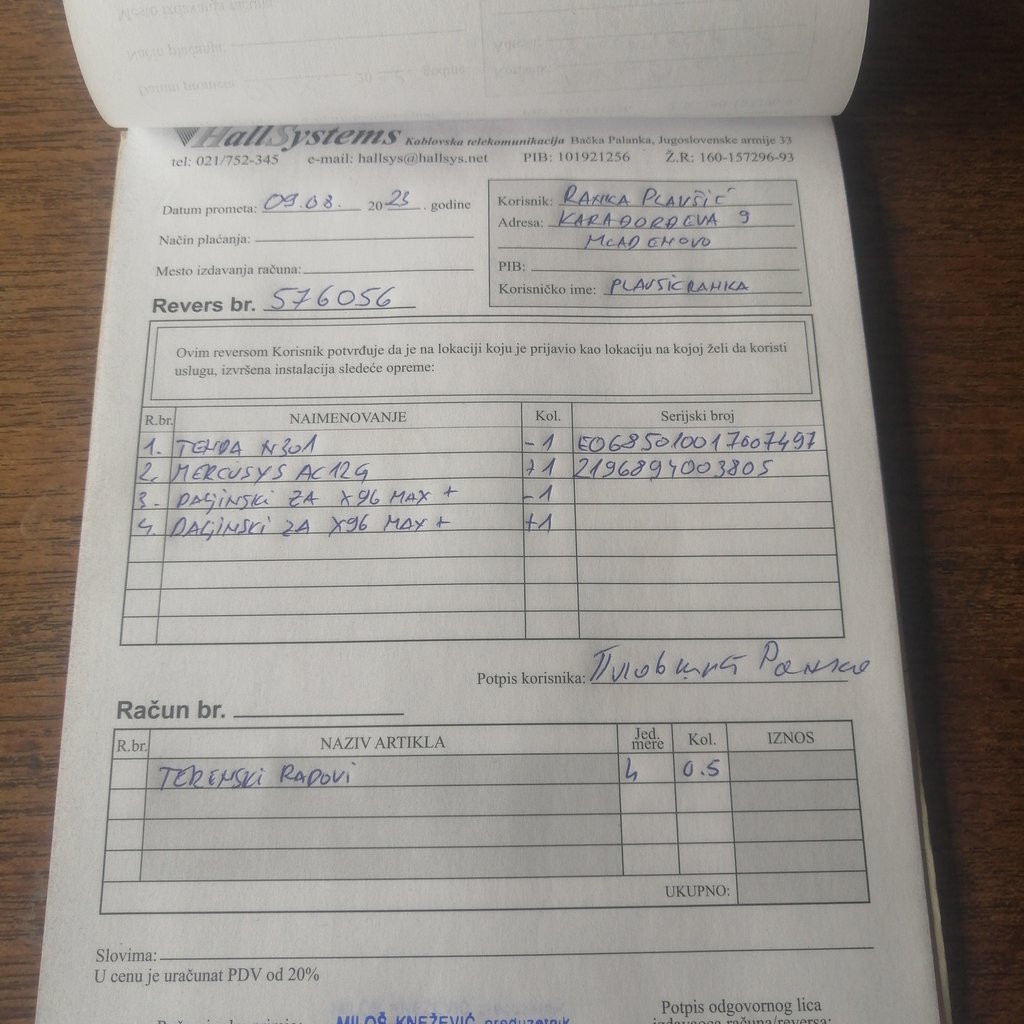 HallSystems Kablovska telekomunikacija Bačka Palanka, Jugoslovenske armije 33
tel: 021/752-345 e-mail: hallsys@hallsys.net PIB: 101921256 Ž.R: 160-157296-93
Datum prometa: 09.08. 2023. godine
Način plaćanja:
Mesto izdavanja računa:
Revers br. 576056
Korisnik: RANKA PLAVŠIĆ
Adresa: KARAĐORĐEVA 9
MLADENOVO
PIB:
Korisničko ime: PLAVSICRANKA
Ovim reversom Korisnik potvrđuje da je na lokaciji koju je prijavio kao lokaciju na kojoj želi da koristi
uslugu, izvršena instalacija sledeće opreme:
R.br. NAIMENOVANJE Kol. Serijski broj
1. TENDA N301 -1 E0685010017607497
2. MERCUSYS AC12G +1 2196894003805
3. DALJINSKI ZA X96 MAX + -1
4. DALJINSKI ZA X96 MAX + +1
Potpis korisnika:
Račun br.
R.br. NAZIV ARTIKLA Jed. mere Kol. IZNOS
TERENSKI RADOVI h 0.5
UKUPNO:
Slovima:
U cenu je uračunat PDV od 20%
MILOŠ KNEŽEVIĆ preduzetnik
Potpis odgovornog lica
izdavaoca računa/reversa: